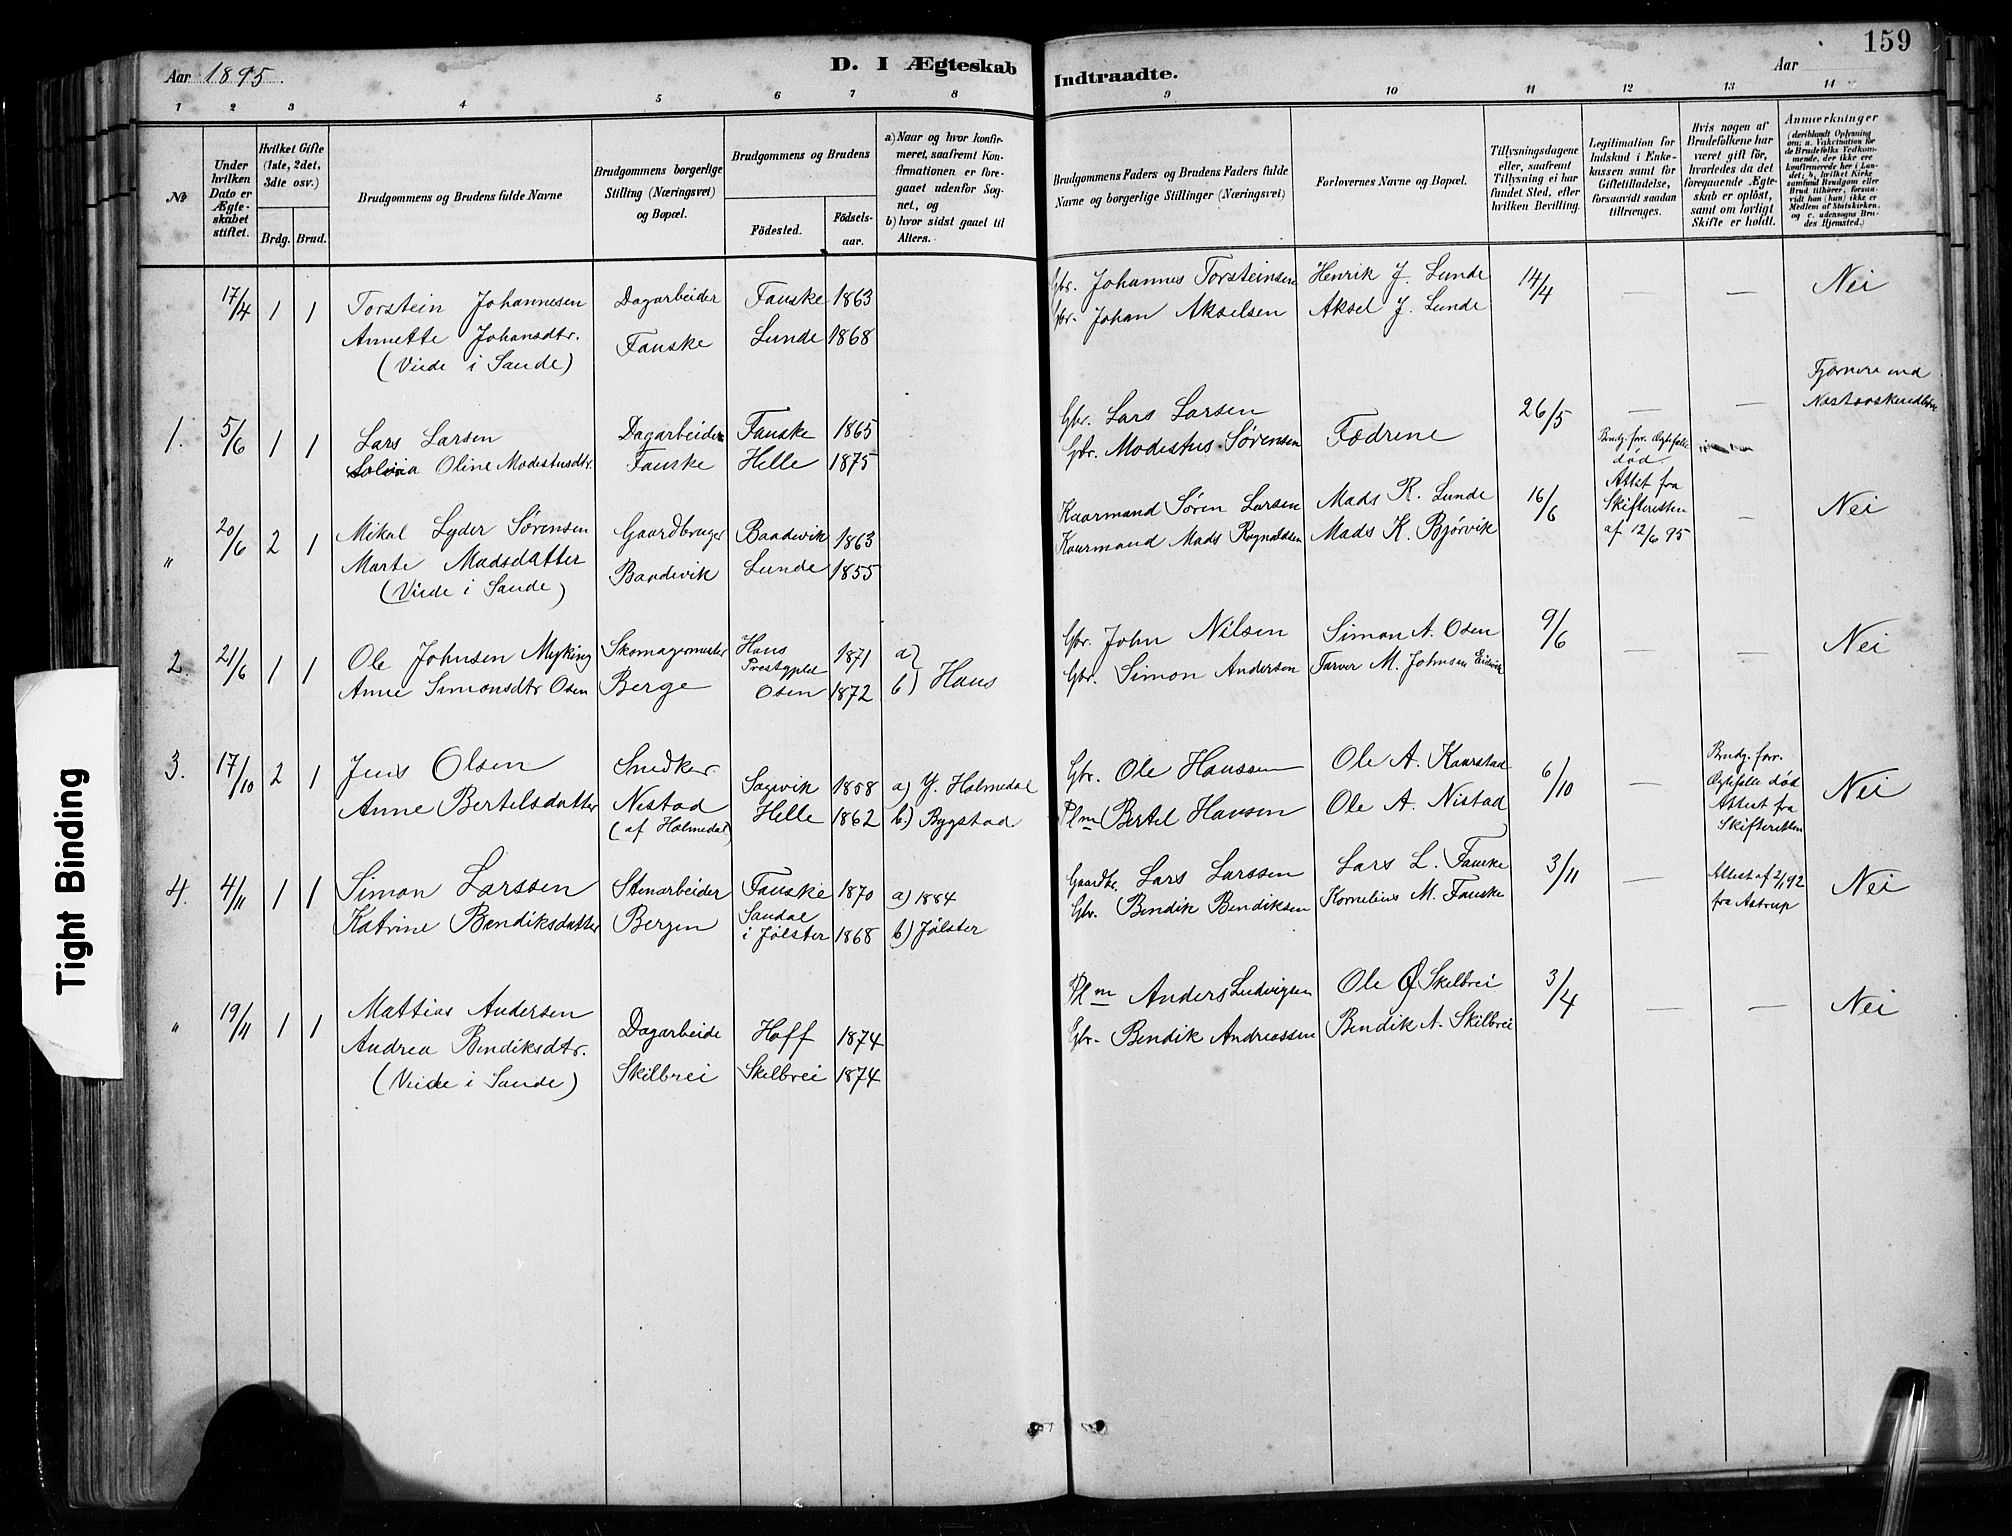 159
Aar 1895.
D. I Ægteskab Indtraadte.
Aar
1 2 3 4 5 6 7 8 9 10 11 12 13 14
No
Under hvilken Dato er Ægteskabet stiftet.
Hvilket Gifte (1ste, 2det, 3die osv.)
Brdg. Brud.
Brudgommens og Brudens fulde Navne
Brudgommens borgerlige Stilling (Næringsvei) og Bopæl.
Brudgommens og Brudens
Fødested. Fødselsaar.
a) Naar og hvor konfirmeret, saafremt Konfirmationen er foregaaet udenfor Sognet, og
b) hvor sidst gaaet til Alters.
Brudgommens Faders og Brudens Faders fulde Navne og borgerlige Stillinger (Næringsvei)
Forlovernes Navne og Bopæl.
Tillysningsdagene eller, saafremt Tillysning ei har fundet Sted, efter hvilken Bevilling.
Legitimation for Indskud i Enkekassen samt for Giftetilladelse, forsaavidt saadan tiltrænges.
Hvis nogen af Brudefolkene har været gift før, hvorledes da det foregaaende Ægteskab er opløst, samt om lovligt Skifte er holdt.
Anmærkninger (deriblandt Oplysning om: a. Vakcination for de Brudefolks Vedkommende, der ikke ere konfirmerede her i Landet; b. hvilket Kirkesamfund Brudgom eller Brud tilhører, forsaavidt han (hun) ikke er Medlem af Statskirken, og c. udensogns Brudes Hjemsted.)
17/4 1 1 Torstein Johannesen Dagarbeider Fauske 1863 Gbr. Johannes Torsteinsen Henrik J. Lunde 14/4 — — Nei
Annette Johansdtr. Fauske Lunde 1868 Gbr. Johan Akselsen Aksel J. Lunde
(Viede i Sande)
1. 5/6 1 1 Lars Larsen Dagarbeider Fauske 1865 Gbr. Lars Larsen Fædrene 26/5 — —
Oline Modestusdtr. Fauske Helle 1875 Gbr. Modestus Sørensen
" 20/6 2 1 Mikal Lyder Sørensen Gaardbruger Baadevik 1863 Kaarmand Søren Larsen Mads R. Lunde 16/6 Brudg. for. Ægtefælle død. Attest fra Skifteretten af 12/6 95 — Nei
Marte Madsdatter Baadevik Lunde 1855 Kaarmand Mads Rognaldsen Mads K. Bjørvik
(Viede i Sande)
2. 21/6 1 1 Ole Johnsen Myking Skomagermester Haus 1871 a) Gbr. John Nilsen Simon A. Osen 9/6 — — Nei
Anne Simonsdtr Osen Berge Osen 1872 b) Haus Gbr. Simon Andersen Farver M. Johnsen
3. 17/10 2 1 Jens Olsen Snedker Sagevik 1858 a) Y. Holmedal Gbr. Ole Hanssen Ole A. Kaarstad 6/10 — Brudg. forr. Ægtefelle død Attest fra Skifteretten Nei
Anne Bertelsdatter Nestad Helle 1862 b.) Bygstad Plm Bertel Hansen Ole A. Nistad
(af Holmedal)
4. 4/11 1 1 Simon Larssen Stenarbeider Fauske 1870 a) 1884 Gaardbr. Lars Larssen Lars L. Fauske 3/11 — Attest af 2/1 92 fra Astrup Nei
Katrine Bendiksdatter Bergen Sandal i Jølster 1868 b) Jølster Gbr. Bendik Bendiksen Kornelius M. Fauske
" 19/11 1 1 Mattias Andersen Dagarbeide Hoff 1874 Plm Anders Ludvigsen Ole O Skilbrei 3/4 — — Nei
Andrea Bendiksdtr. Skilbrei Skilbrei 1874 Gbr. Bendik Andreassen Bendik A. Skilbrei
(Viede i Sande)
Tight Binding